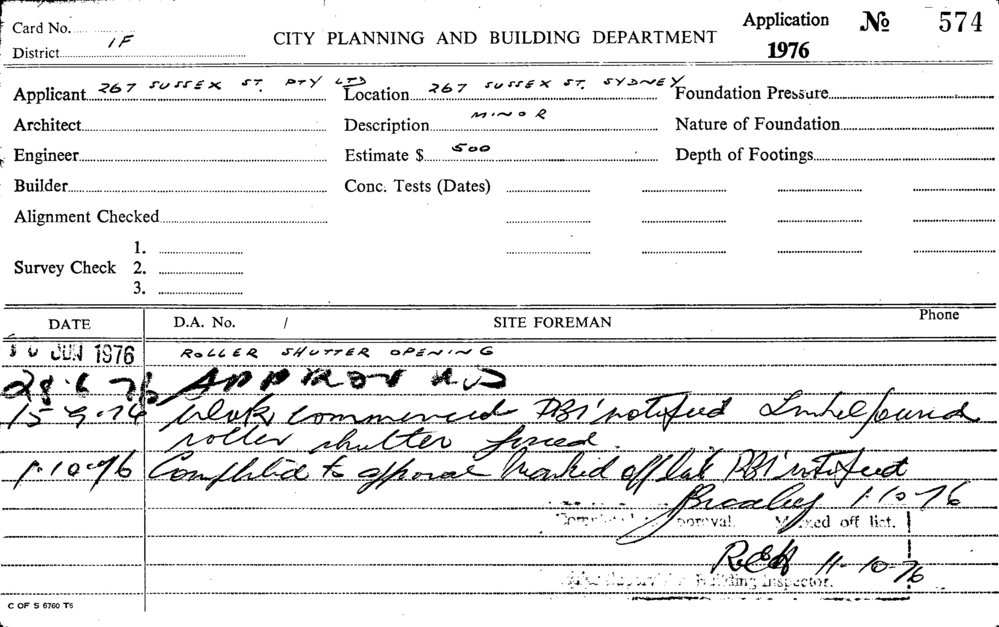 Card No.
District 1F
CITY PLANNING AND BUILDING DEPARTMENT
Application No 574
1976
Applicant 267 SUSSEX ST. PTY LTD
Location 267 SUSSEX ST. SYDNEY
Foundation Pressure
Architect
Description MINOR
Nature of Foundation
Engineer
Estimate $ 500
Depth of Footings
Builder
Conc. Tests (Dates)
Alignment Checked
Survey Check
1.
2.
3.
DATE
D.A. No. /
SITE FOREMAN
Phone
JUN 1976 ROLLER SHUTTER OPENING
28.6 76 APPROVED
15-9-76 commenced notified
roller shutter
1.10.76 Completed to Marked off list notified
1.10.76
Completed approval. Marked off list.
11-10-76
Building Inspector.
C OF S 6760 T5